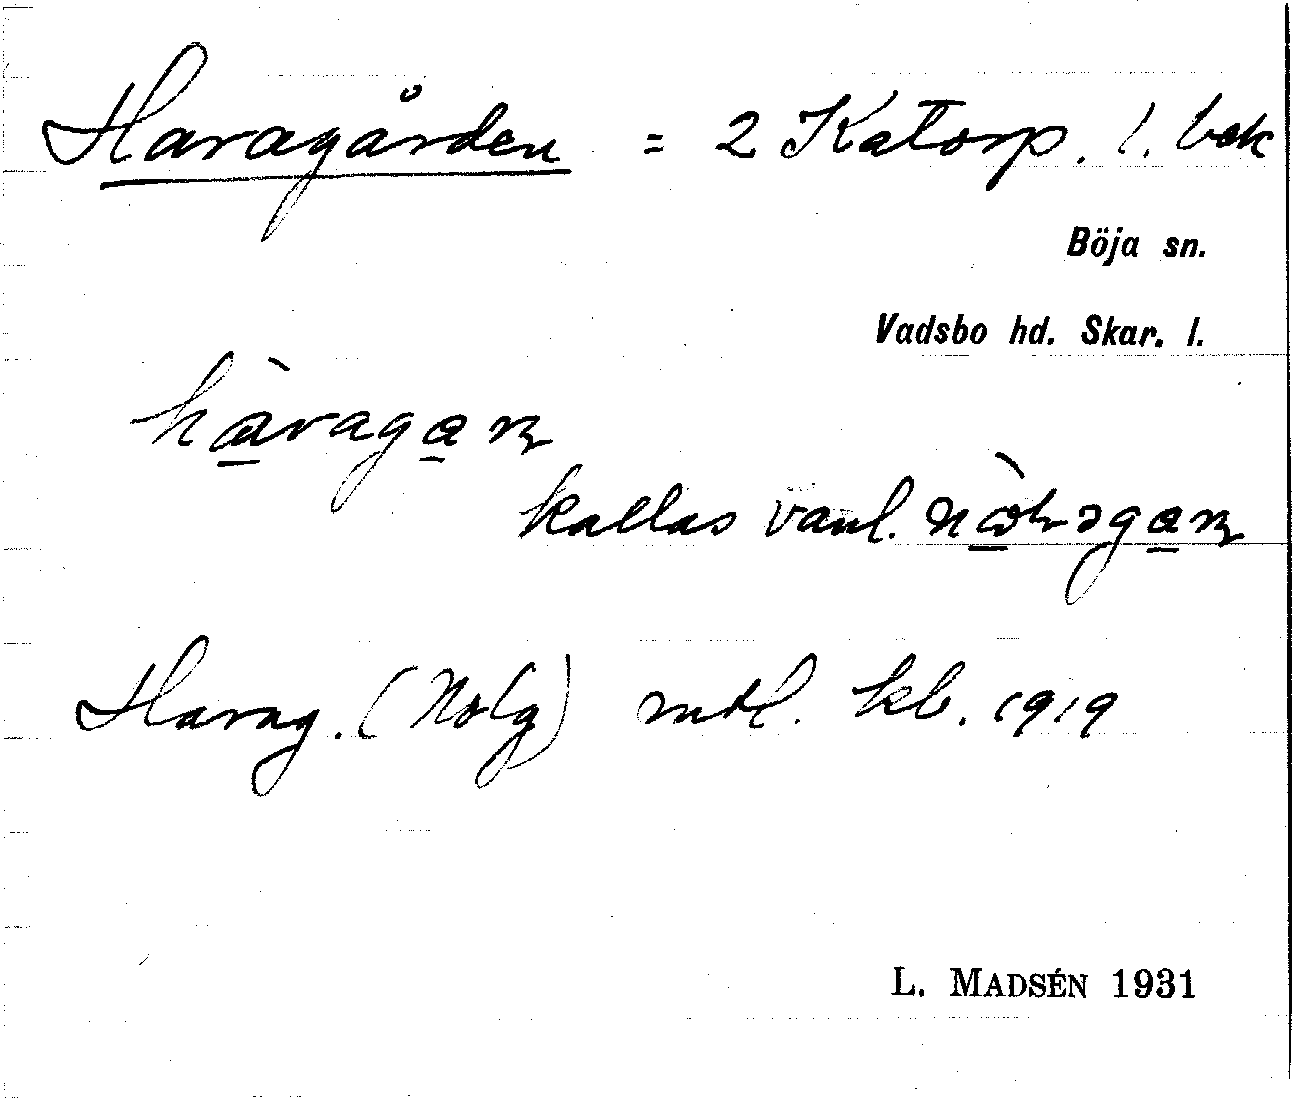 Haragården = 2 Katorp. l. bek
Böja sn.
Vadsbo hd. Skar. l.
hàragaɳ
kallas vanl.
Harag. (Nolg) mtl. kb. 1919
L. MADSÉN 1931